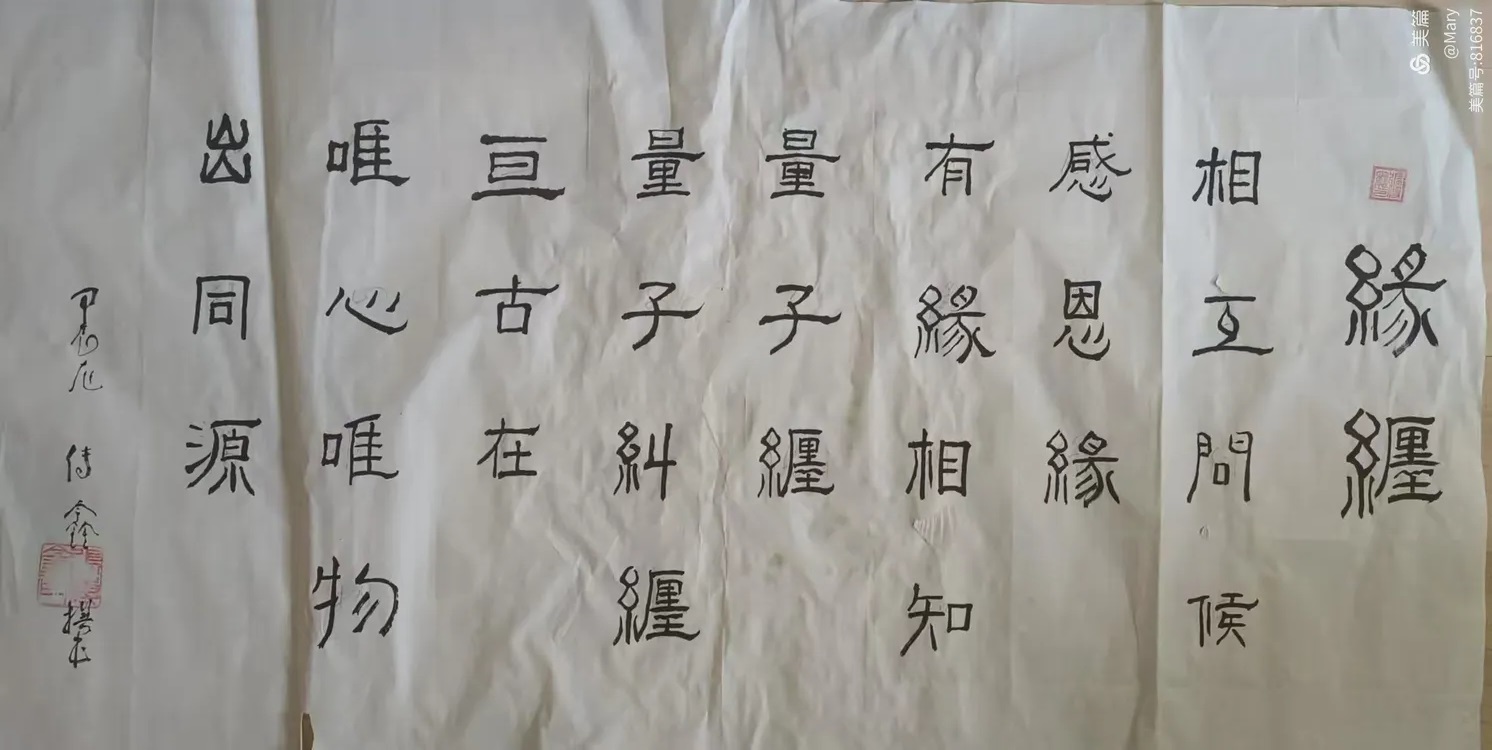 緣纏
相互問候
感恩緣
有緣相知
量子纏
量子糾纏
亘古在
唯心唯物
出同源
甲辰
美篇
@Mary
美篇号:816837